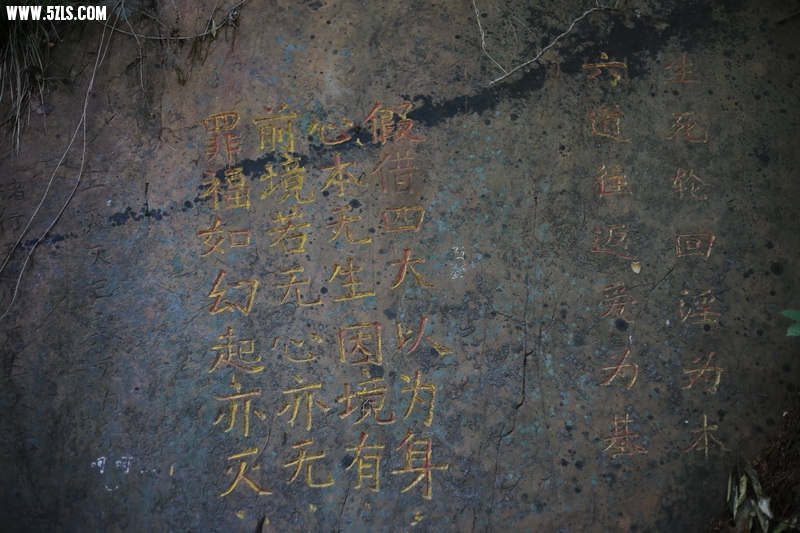 WWW.5ZLS.COM
生死轮回淫为本
六道往返爱为基
假借四大以为身
心本无生因境有
前境若无心亦无
罪福如幻起亦灭
呵呵